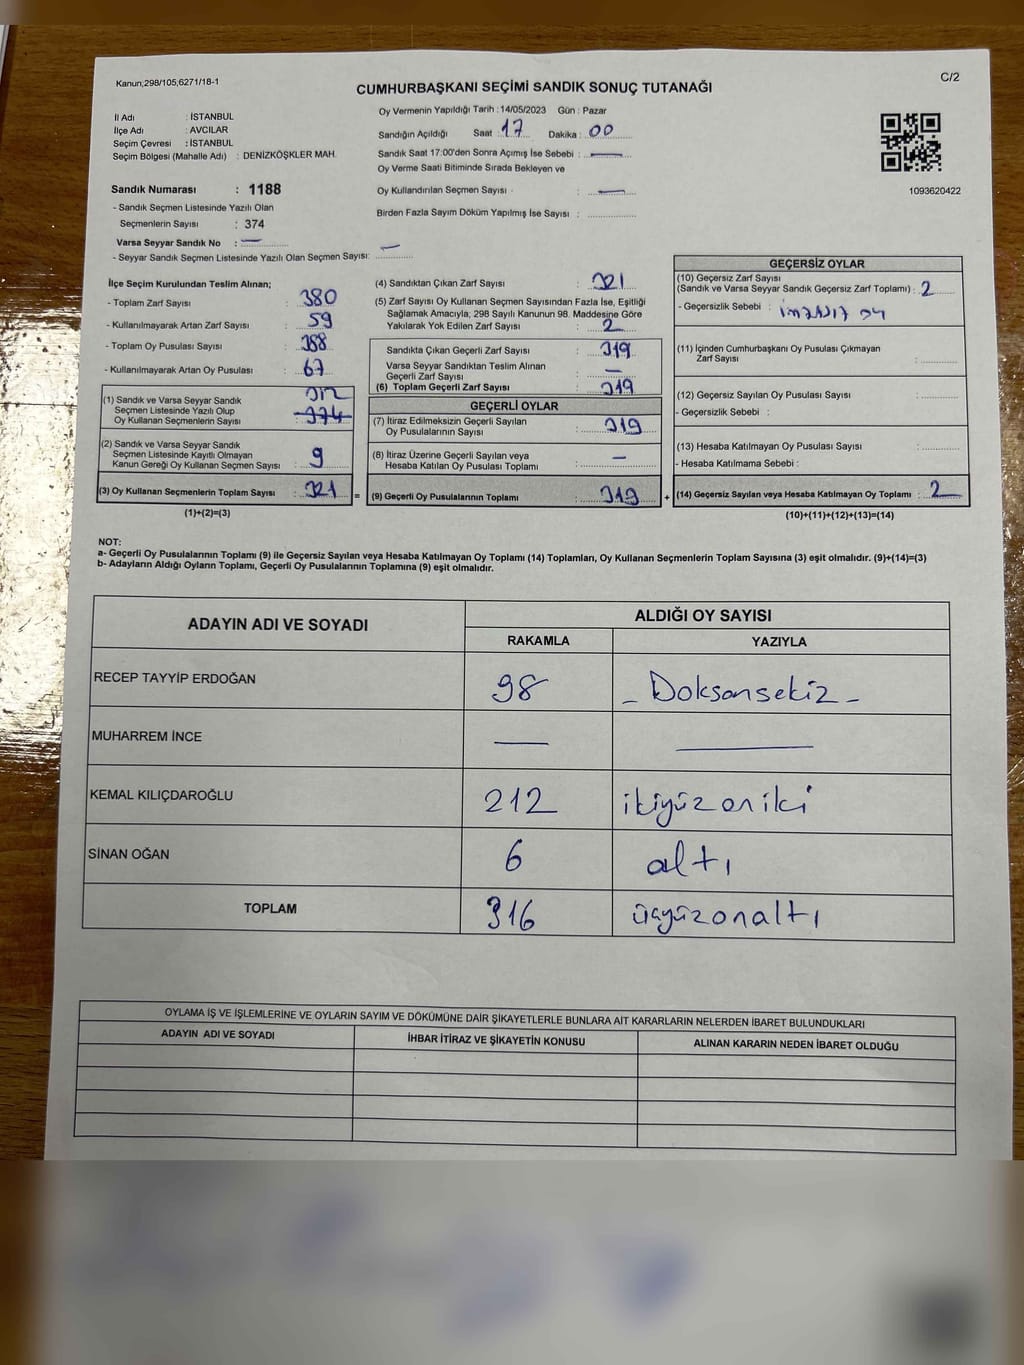 Kanun,298/105,6271/18-1
C/2
CUMHURBAŞKANI SEÇİMİ SANDIK SONUÇ TUTANAĞI
İl Adı : İSTANBUL
İlçe Adı : AVCILAR
Seçim Çevresi : İSTANBUL
Seçim Bölgesi (Mahalle Adı) : DENİZKÖŞKLER MAH.
Sandık Numarası : 1188
- Sandık Seçmen Listesinde Yazılı Olan
Seçmenlerin Sayısı : 374
Varsa Seyyar Sandık No : —
- Seyyar Sandık Seçmen Listesinde Yazılı Olan Seçmen Sayısı: —
Oy Vermenin Yapıldığı Tarih : 14/05/2023 Gün : Pazar
Sandığın Açıldığı Saat : 17 Dakika : 00
Sandık Saat 17:00'den Sonra Açımış İse Sebebi : —
Oy Verme Saati Bitiminde Sırada Bekleyen ve
Oy Kullandırılan Seçmen Sayısı : —
Birden Fazla Sayım Döküm Yapılmış İse Sayısı :
1093620422
İlçe Seçim Kurulundan Teslim Alınan;
- Toplam Zarf Sayısı : 380
- Kullanılmayarak Artan Zarf Sayısı : 59
- Toplam Oy Pusulası Sayısı : 388
- Kullanılmayarak Artan Oy Pusulası : 67
(1) Sandık ve Varsa Seyyar Sandık 312
Seçmen Listesinde Yazılı Olup
Oy Kullanan Seçmenlerin Sayısı : 374
(2) Sandık ve Varsa Seyyar Sandık
Seçmen Listesinde Kayıtlı Olmayan
Kanun Gereği Oy Kullanan Seçmen Sayısı : 9
(3) Oy Kullanan Seçmenlerin Toplam Sayısı : 321 =
(1)+(2)=(3)
(4) Sandıktan Çıkan Zarf Sayısı : 321
(5) Zarf Sayısı Oy Kullanan Seçmen Sayısından Fazla İse, Eşitliği
Sağlamak Amacıyla; 298 Sayılı Kanunun 98. Maddesine Göre
Yakılarak Yok Edilen Zarf Sayısı : 2
Sandıkta Çıkan Geçerli Zarf Sayısı : 319
Varsa Seyyar Sandıktan Teslim Alınan
Geçerli Zarf Sayısı : —
(6) Toplam Geçerli Zarf Sayısı : 319
GEÇERLİ OYLAR
(7) İtiraz Edilmeksizin Geçerli Sayılan
Oy Pusulalarının Sayısı : 319
(8) İtiraz Üzerine Geçerli Sayılan veya
Hesaba Katılan Oy Pusulası Toplamı : —
(9) Geçerli Oy Pusulalarının Toplamı : 319 +
GEÇERSİZ OYLAR
(10) Geçersiz Zarf Sayısı
(Sandık ve Varsa Seyyar Sandık Geçersiz Zarf Toplamı) : 2
- Geçersizlik Sebebi :
(11) İçinden Cumhurbaşkanı Oy Pusulası Çıkmayan
Zarf Sayısı :
(12) Geçersiz Sayılan Oy Pusulası Sayısı :
- Geçersizlik Sebebi :
(13) Hesaba Katılmayan Oy Pusulası Sayısı :
- Hesaba Katılmama Sebebi :
(14) Geçersiz Sayılan veya Hesaba Katılmayan Oy Toplamı : 2
(10)+(11)+(12)+(13)=(14)
NOT:
a- Geçerli Oy Pusulalarının Toplamı (9) ile Geçersiz Sayılan veya Hesaba Katılmayan Oy Toplamı (14) Toplamları, Oy Kullanan Seçmenlerin Toplam Sayısına (3) eşit olmalıdır. (9)+(14)=(3)
b- Adayların Aldığı Oyların Toplamı, Geçerli Oy Pusulalarının Toplamına (9) eşit olmalıdır.
ADAYIN ADI VE SOYADI
ALDIĞI OY SAYISI
RAKAMLA YAZIYLA
RECEP TAYYİP ERDOĞAN 98 - Doksansekiz -
MUHARREM İNCE — —
KEMAL KILIÇDAROĞLU 212 ikiyüzoniki
SİNAN OĞAN 6 altı
TOPLAM 316 üçyüzonaltı
OYLAMA İŞ VE İŞLEMLERİNE VE OYLARIN SAYIM VE DÖKÜMÜNE DAİR ŞİKAYETLERLE BUNLARA AİT KARARLARIN NELERDEN İBARET BULUNDUKLARI
ADAYIN ADI VE SOYADI İHBAR İTİRAZ VE ŞİKAYETİN KONUSU ALINAN KARARIN NEDEN İBARET OLDUĞU